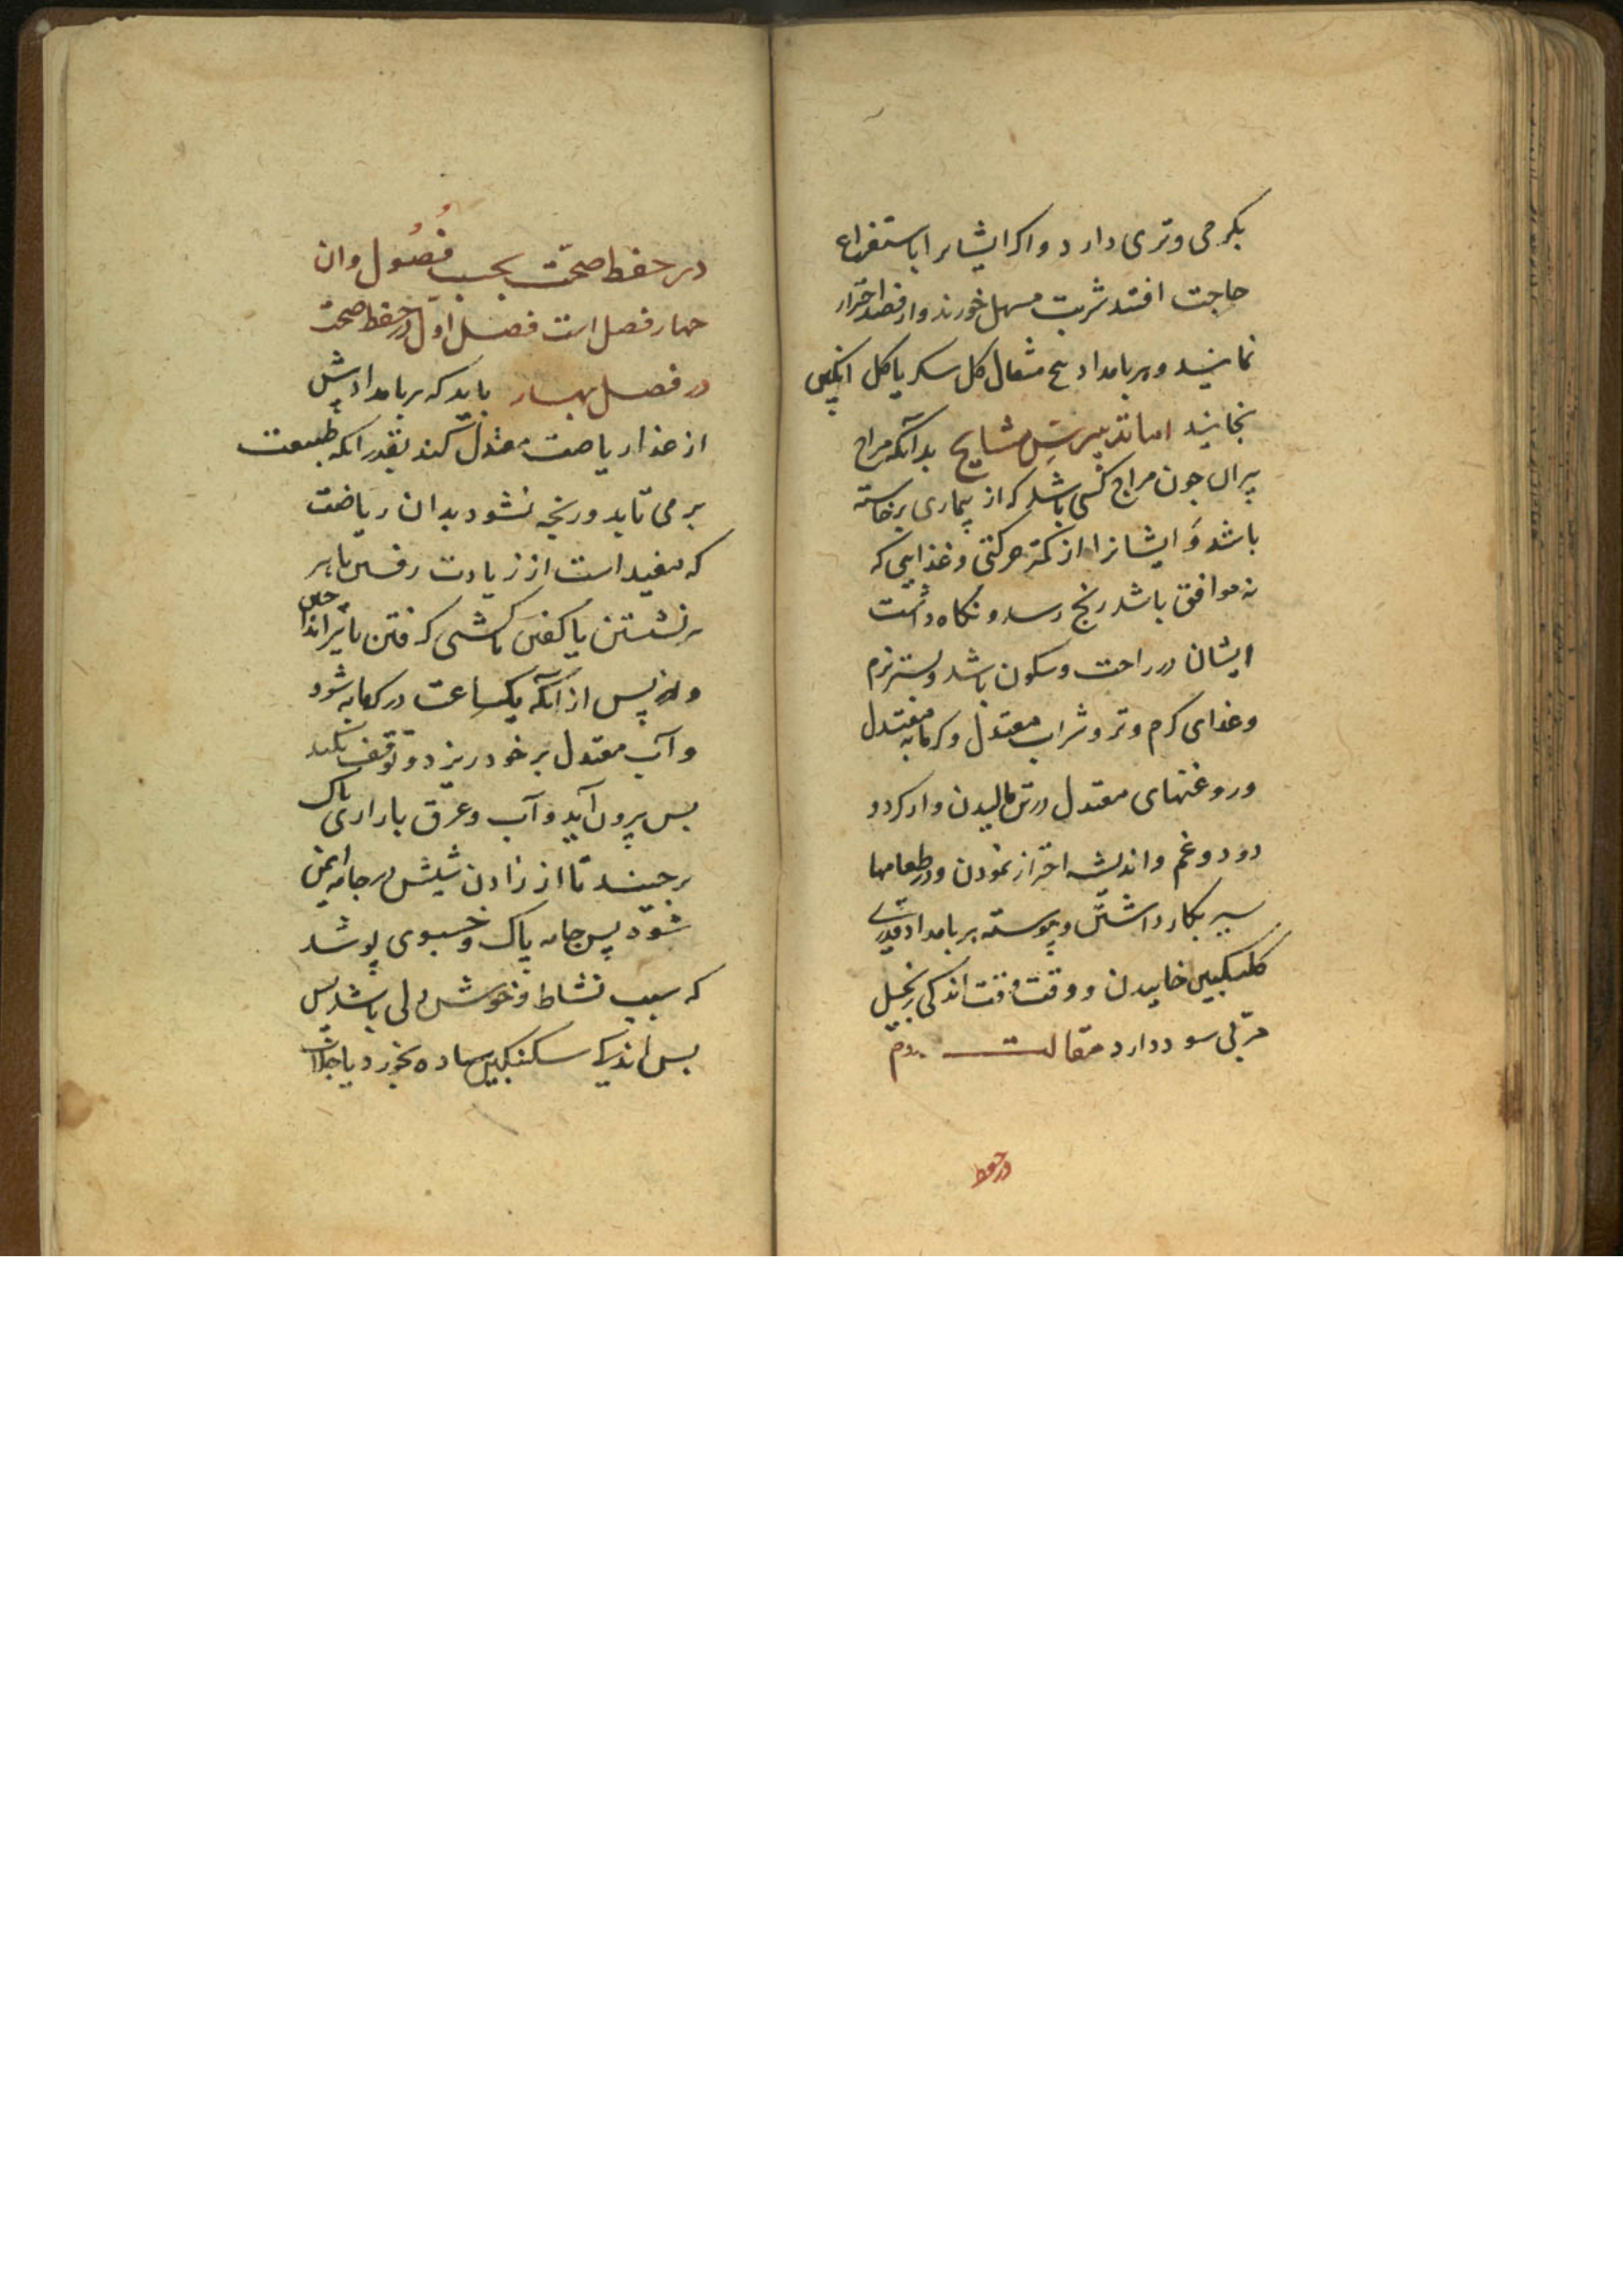 بکرمی و تری دارد و اکر ایشانرا باستفراغ
حاجت افتد شربت مسهل خورند و از فصد احتراز
نمایند و هر بامداد پنج مثقال کل سکر یا کل انکبین
بخایند اما تدبیر مشایخ بدانکه مزاج
پیران چون مزاج کسی باشد که از بیماری برخاسته
باشد و ایشانرا از کمتر حرکتی و غذایی که
نه موافق باشد رنج رسد و نکاه داشت
ایشان در راحت و سکون باشد و بستر نرم
و غذای کرم و تر و شراب معتدل و کرمابه معتدل
و روغنهای معتدل در تن مالیدن و از کرد و
دود و غم و اندیشه احتراز نمودن و در طعامها
سیر بکار داشتن و پیوسته هر بامداد قدری
کلنکبین خاییدن و وقت وقت اندکی زنجبیل
مربی سود دارد مقالت دوم
در حفظ
در حفظ صحت بحسب فصول و ان
چهار فصل است فصل اول در حفظ صحت
در فصل بهار باید که هر بامداد پیش
از غذا ریاضت معتدل کند بقدر انکه طبیعت
بر می تابد و رنجه نشود بدان ریاضت
که مفید است از زیادت رفتن یا بر
نشستن یا کشتی کرفتن یا تیر انداختن
و پس از آنکه یکساعت در کرمابه شود
و آب معتدل بر خود ریزد و توقف نکند
پس بیرون آید و آب و عرق بازاری پاک
برچیند تا از زادن شپش در جامه ایمن
شود پس جامه پاک و خشبوی پوشد
که سبب نشاط و خوش دلی باشد پس
پس اندکی سکنکبین ساده بخورد یا جلاب